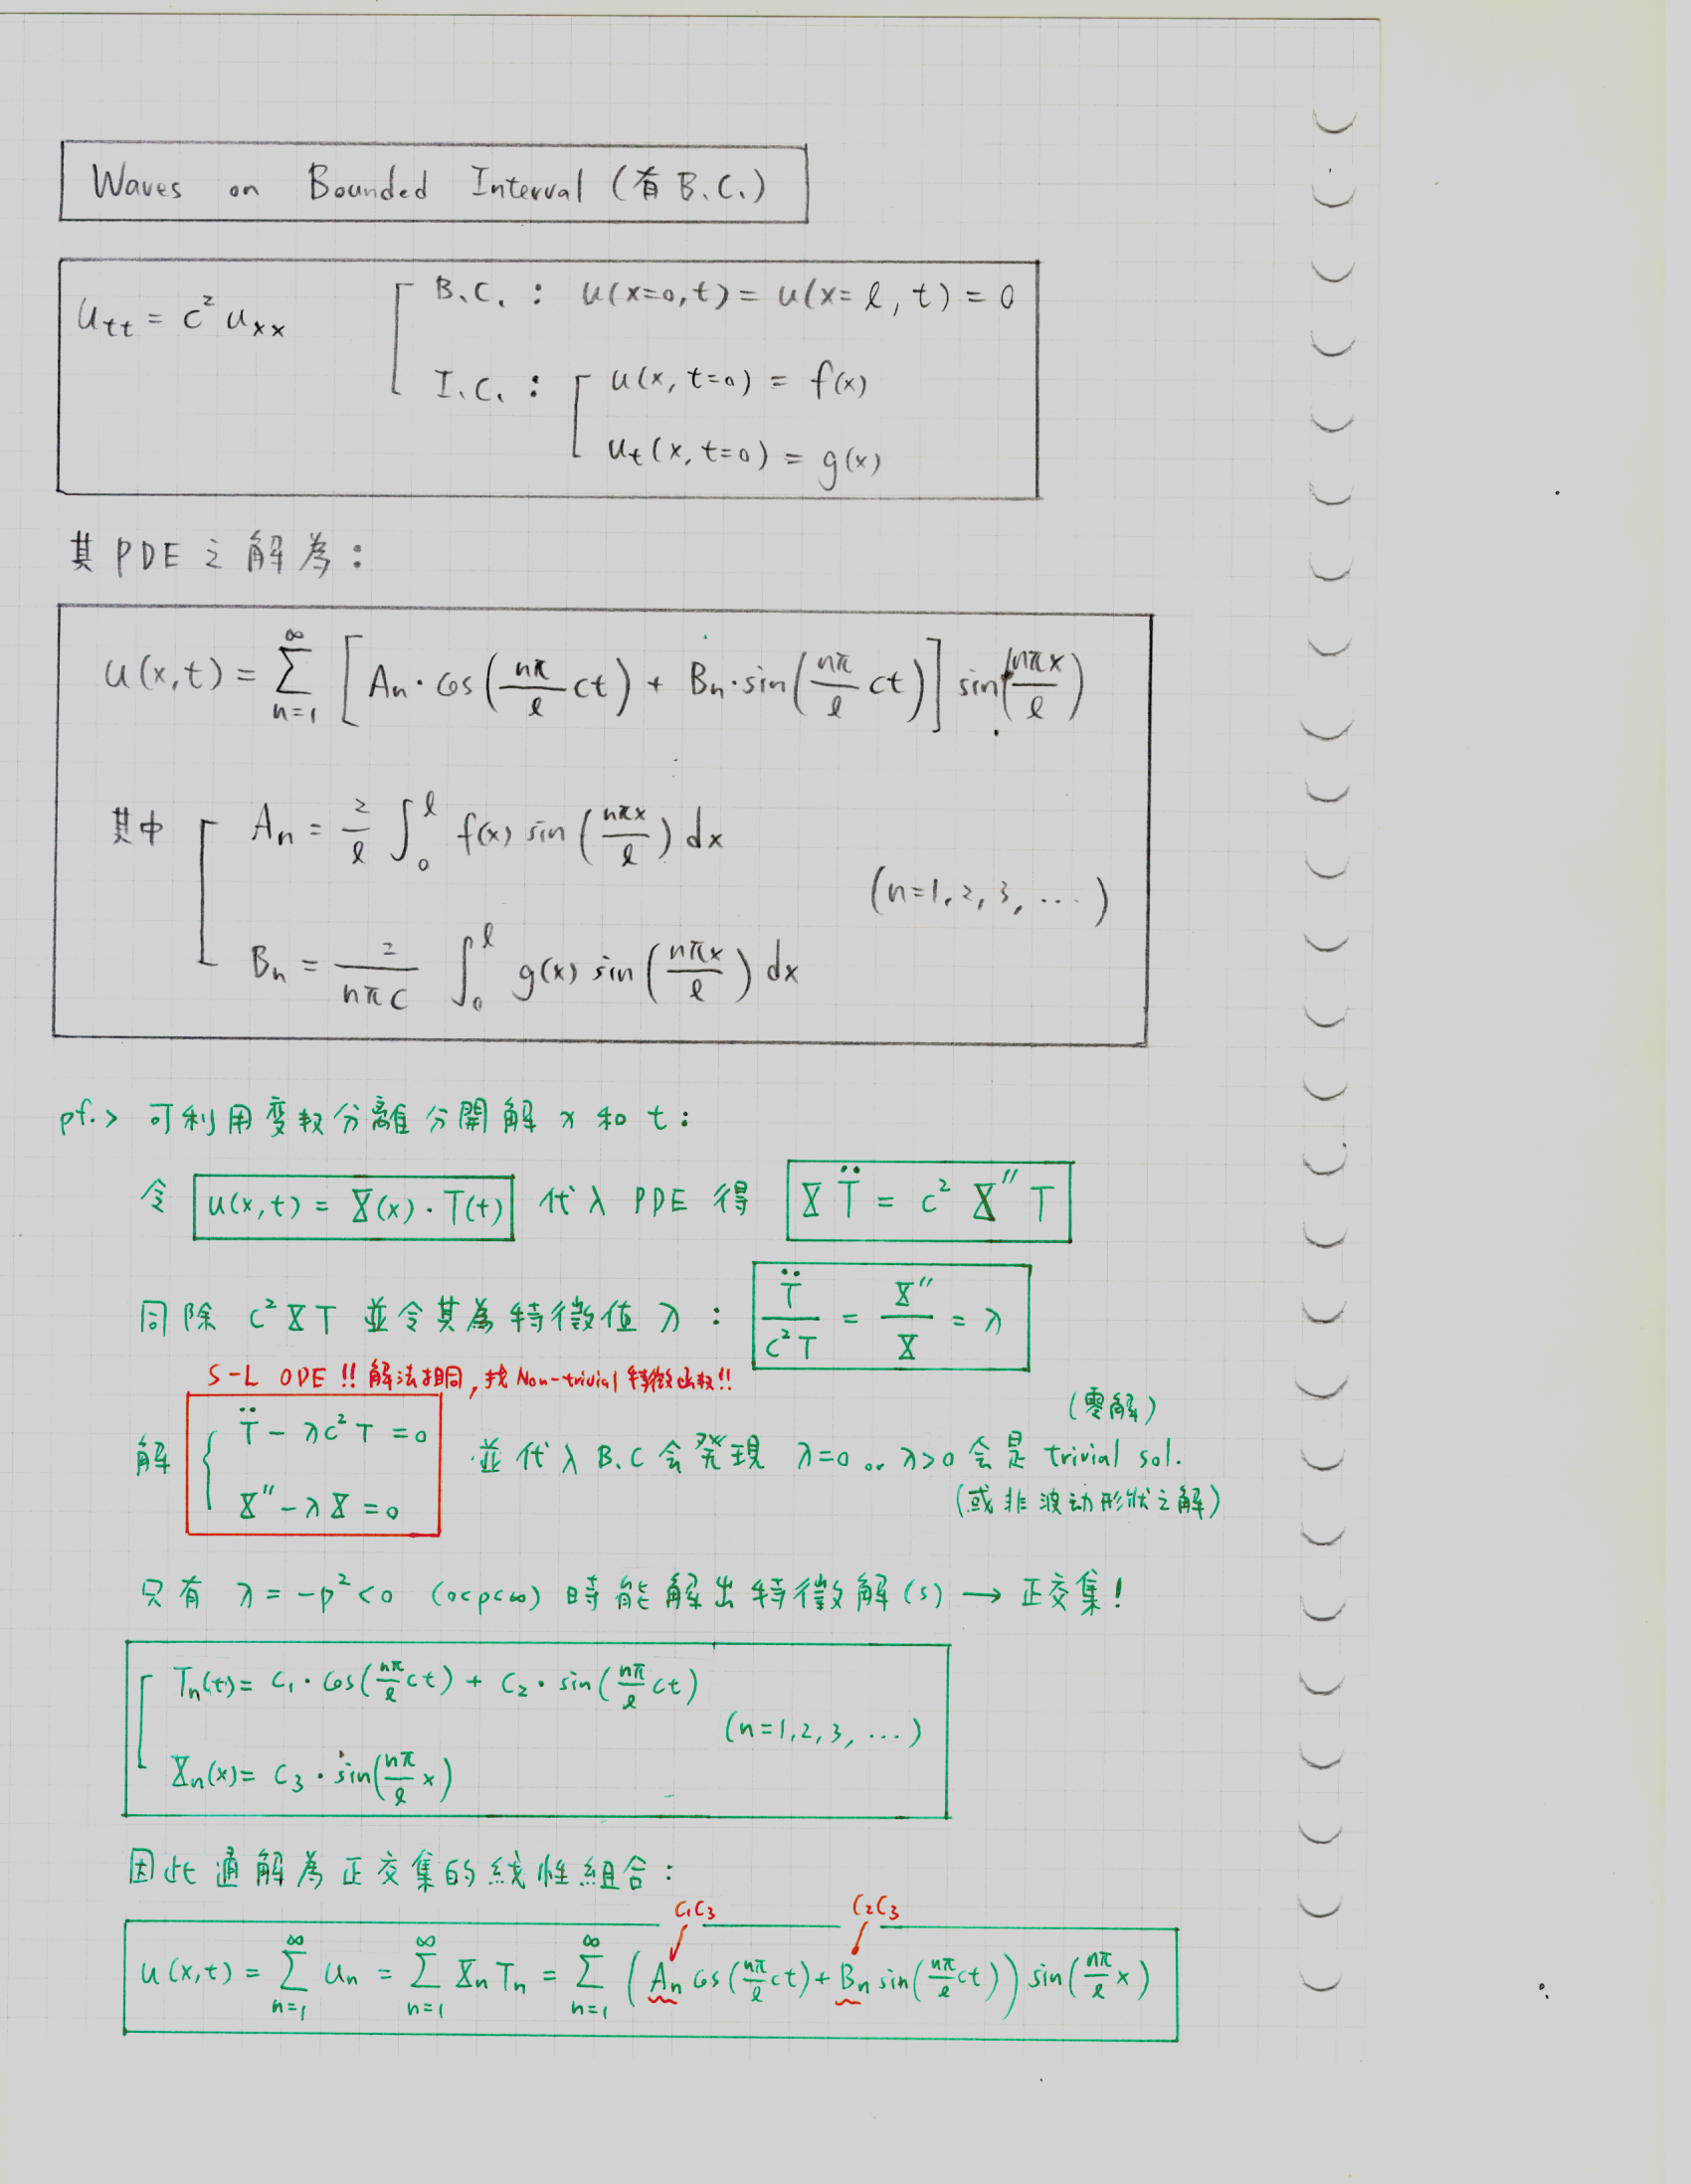 Waves on Bounded Interval (有 B.C.)
u_tt = c² u_xx
B.C. : u(x=0,t) = u(x=ℓ, t) = 0
I.C. : u(x, t=0) = f(x)
u_t(x, t=0) = g(x)
其 PDE 之解為:
u(x,t) = Σ_{n=1}^{∞} [ An·cos(nπ/ℓ ct) + Bn·sin(nπ/ℓ ct) ] sin(nπx/ℓ)
其中 An = 2/ℓ ∫_0^ℓ f(x) sin(nπx/ℓ) dx
(n=1, 2, 3, ...)
Bn = 2/(nπc) ∫_0^ℓ g(x) sin(nπx/ℓ) dx
pf.> 可利用变数分離分開解 x 和 t:
令 u(x,t) = X(x)·T(t) 代入 PDE 得 X T̈ = c² X'' T
同除 c² X T 並令其為特徵值 λ : T̈/(c² T) = X''/X = λ
S-L ODE !! 解法相同, 找 Non-trivial 特徵函数!!
(零解)
解 { T̈ - λc² T = 0 並代入 B.C 会発現 λ=0 or λ>0 会是 trivial sol.
X'' - λX = 0
(或非波动形狀之解)
只有 λ = -p² < 0 (0<p<∞) 時能解出特徵解(s) → 正交集!
Tn(t) = C₁·cos(nπ/ℓ ct) + C₂·sin(nπ/ℓ ct)
(n=1,2,3, ...)
Xn(x) = C₃·sin(nπ/ℓ x)
因此通解為正交集的线性組合:
C₁C₃ C₂C₃
u(x,t) = Σ_{n=1}^{∞} Un = Σ_{n=1}^{∞} Xn Tn = Σ_{n=1}^{∞} ( An cos(nπ/ℓ ct) + Bn sin(nπ/ℓ ct) ) sin(nπ/ℓ x)